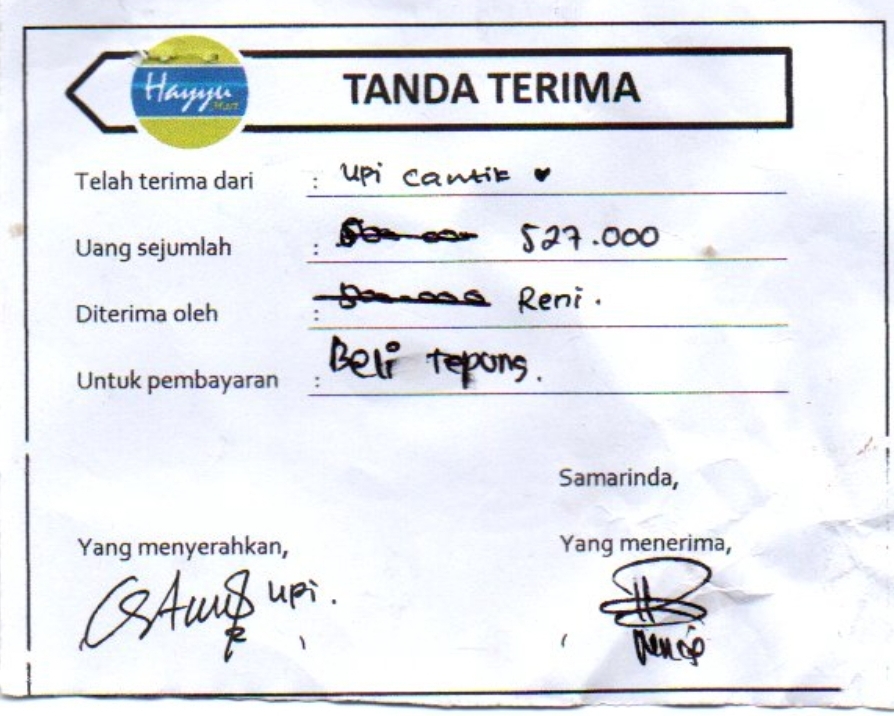 Hayyu
Mart
TANDA TERIMA
Telah terima dari : upi cantik ♥
Uang sejumlah : 527.000
Diterima oleh : Reni.
Untuk pembayaran : Beli tepung.
Samarinda,
Yang menyerahkan,
Yang menerima,
upi.